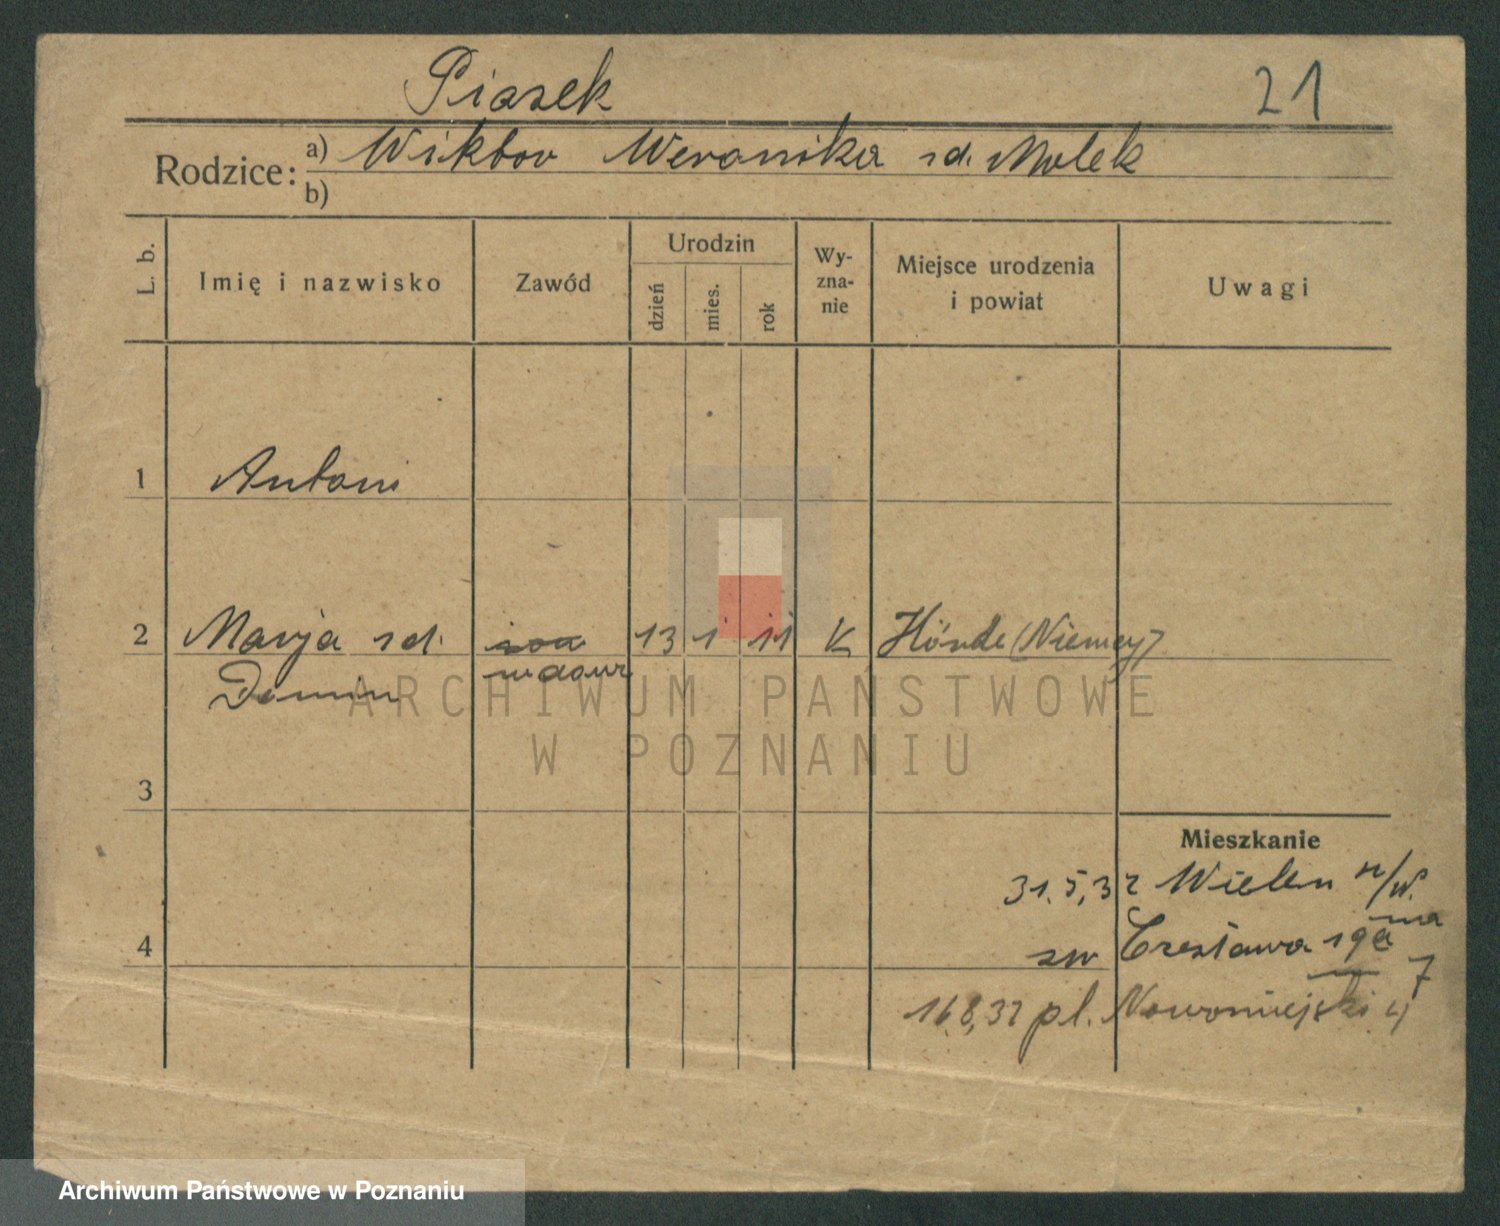 Piasek 21
Rodzice: a) Wiktor Weronika zd. Molek
b)
L. b. Imię i nazwisko Zawód Urodzin dzień mies. rok Wy-zna-nie Miejsce urodzenia i powiat Uwagi
1 Antoni
2 Marja zd. 13 1 11 K Hörde (Niemcy)
ARCHIWUM PAŃSTWOWE
W POZNANIU
3
Mieszkanie
31.5,32 Wieleń n/N.
4 zw Czesława 19a
7
16.8,32 pl. Nowomiejski 4
Archiwum Państwowe w Poznaniu